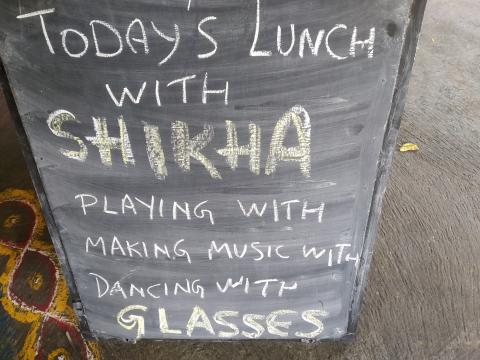 TODAY'S LUNCH
WITH
SHIKHA
PLAYING WITH
MAKING MUSIC WITH
DANCING WITH
GLASSES